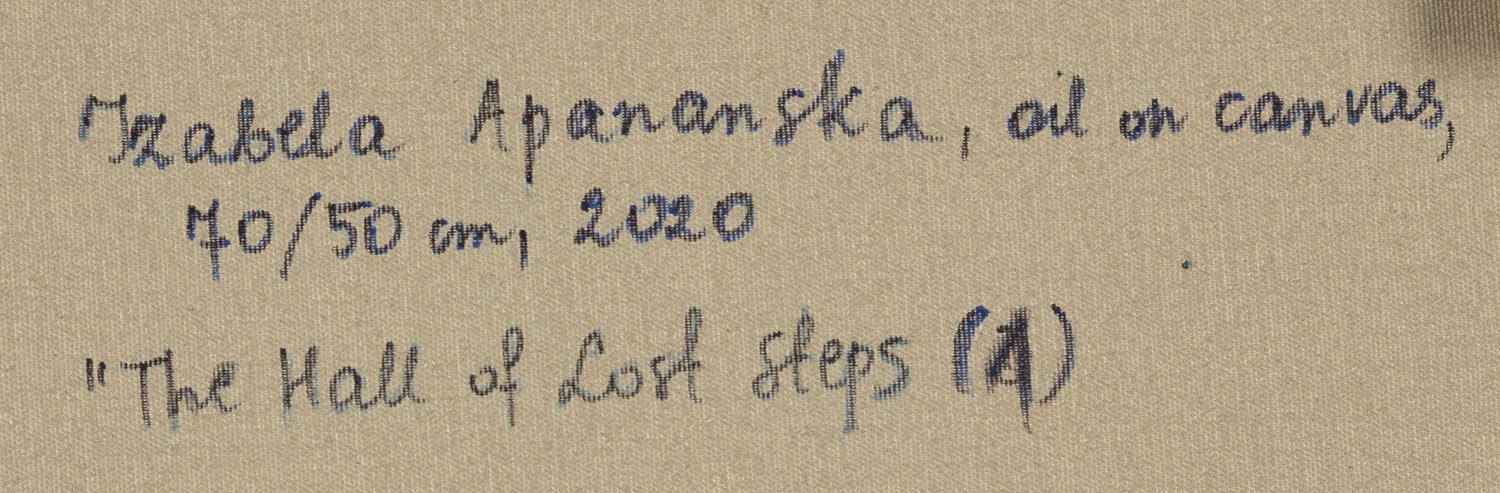 Izabela Apananska, oil on canvas,
70/50 cm, 2020
"The Hall of Lost Steps (1)